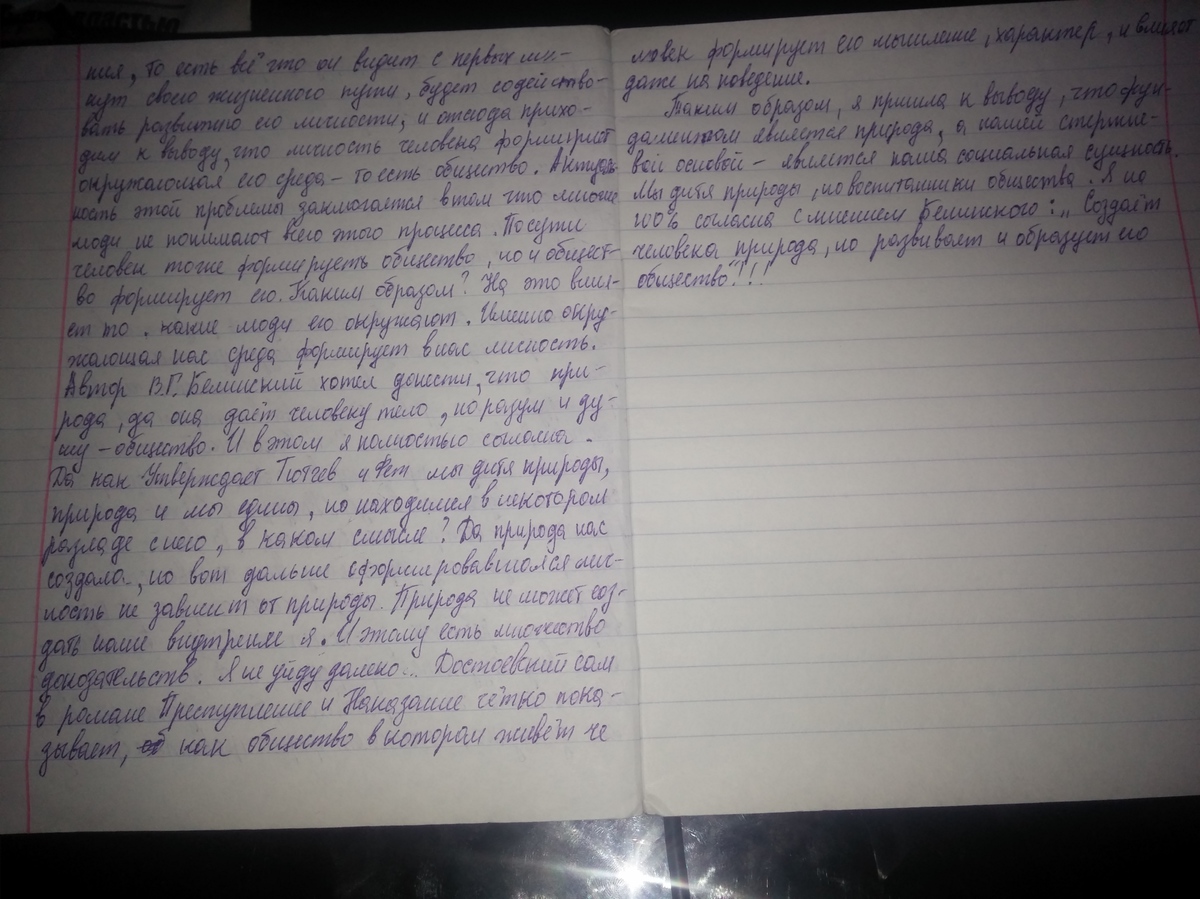 властью
ния, то есть всё что он видит с первых ми-
нут своего жизненного пути, будет содейство-
вать развитию его личности, и отсюда прихо-
дим к выводу, что личность человека формирует
окружающая его среда – то есть общество. Актуаль-
ность этой проблемы заключается в том что многие
люди не понимают всего этого процесса. Посути
человек тоже формируеть общество, но и общест-
во формирует его. Каким образом? На это влия-
ет то . какие люди его окружают. Именно окру-
жающая нас среда формирует в нас личность.
Автор В.Г. Белинский хотел донести, что при-
рода, да она даёт человеку тело, но разум и ду-
шу – общество. И в этом я полностью согласна.
Да как Утверждает Тютчев и Фет мы дитя природы,
природа и мы едины, но находимся в некотором
разладе с него, в каком смысле? Да природа нас
создала, но вот дальше сформировавшаяся лич-
ность не зависит от природы. Природа не может соз-
дать наше внутренне я. И этому есть множество
доказательств. Я не уйду далеко... Достоевский сам
в романе Преступление и Наказание чётко пока-
зывает, как общество в котором живёт че
ловек формирует его мышление, характер, и влияет
даже на поведение.
Таким образом, я пришла к выводу, что фун-
даментом является природа, а нашей стержне-
вой основой – является наша социальная сущность.
Мы дитя природы, но воспитанники общества. Я на
100% согласна с мнением Белинского: „Создаёт
человека природа, но развивает и образует его
общество"!!!